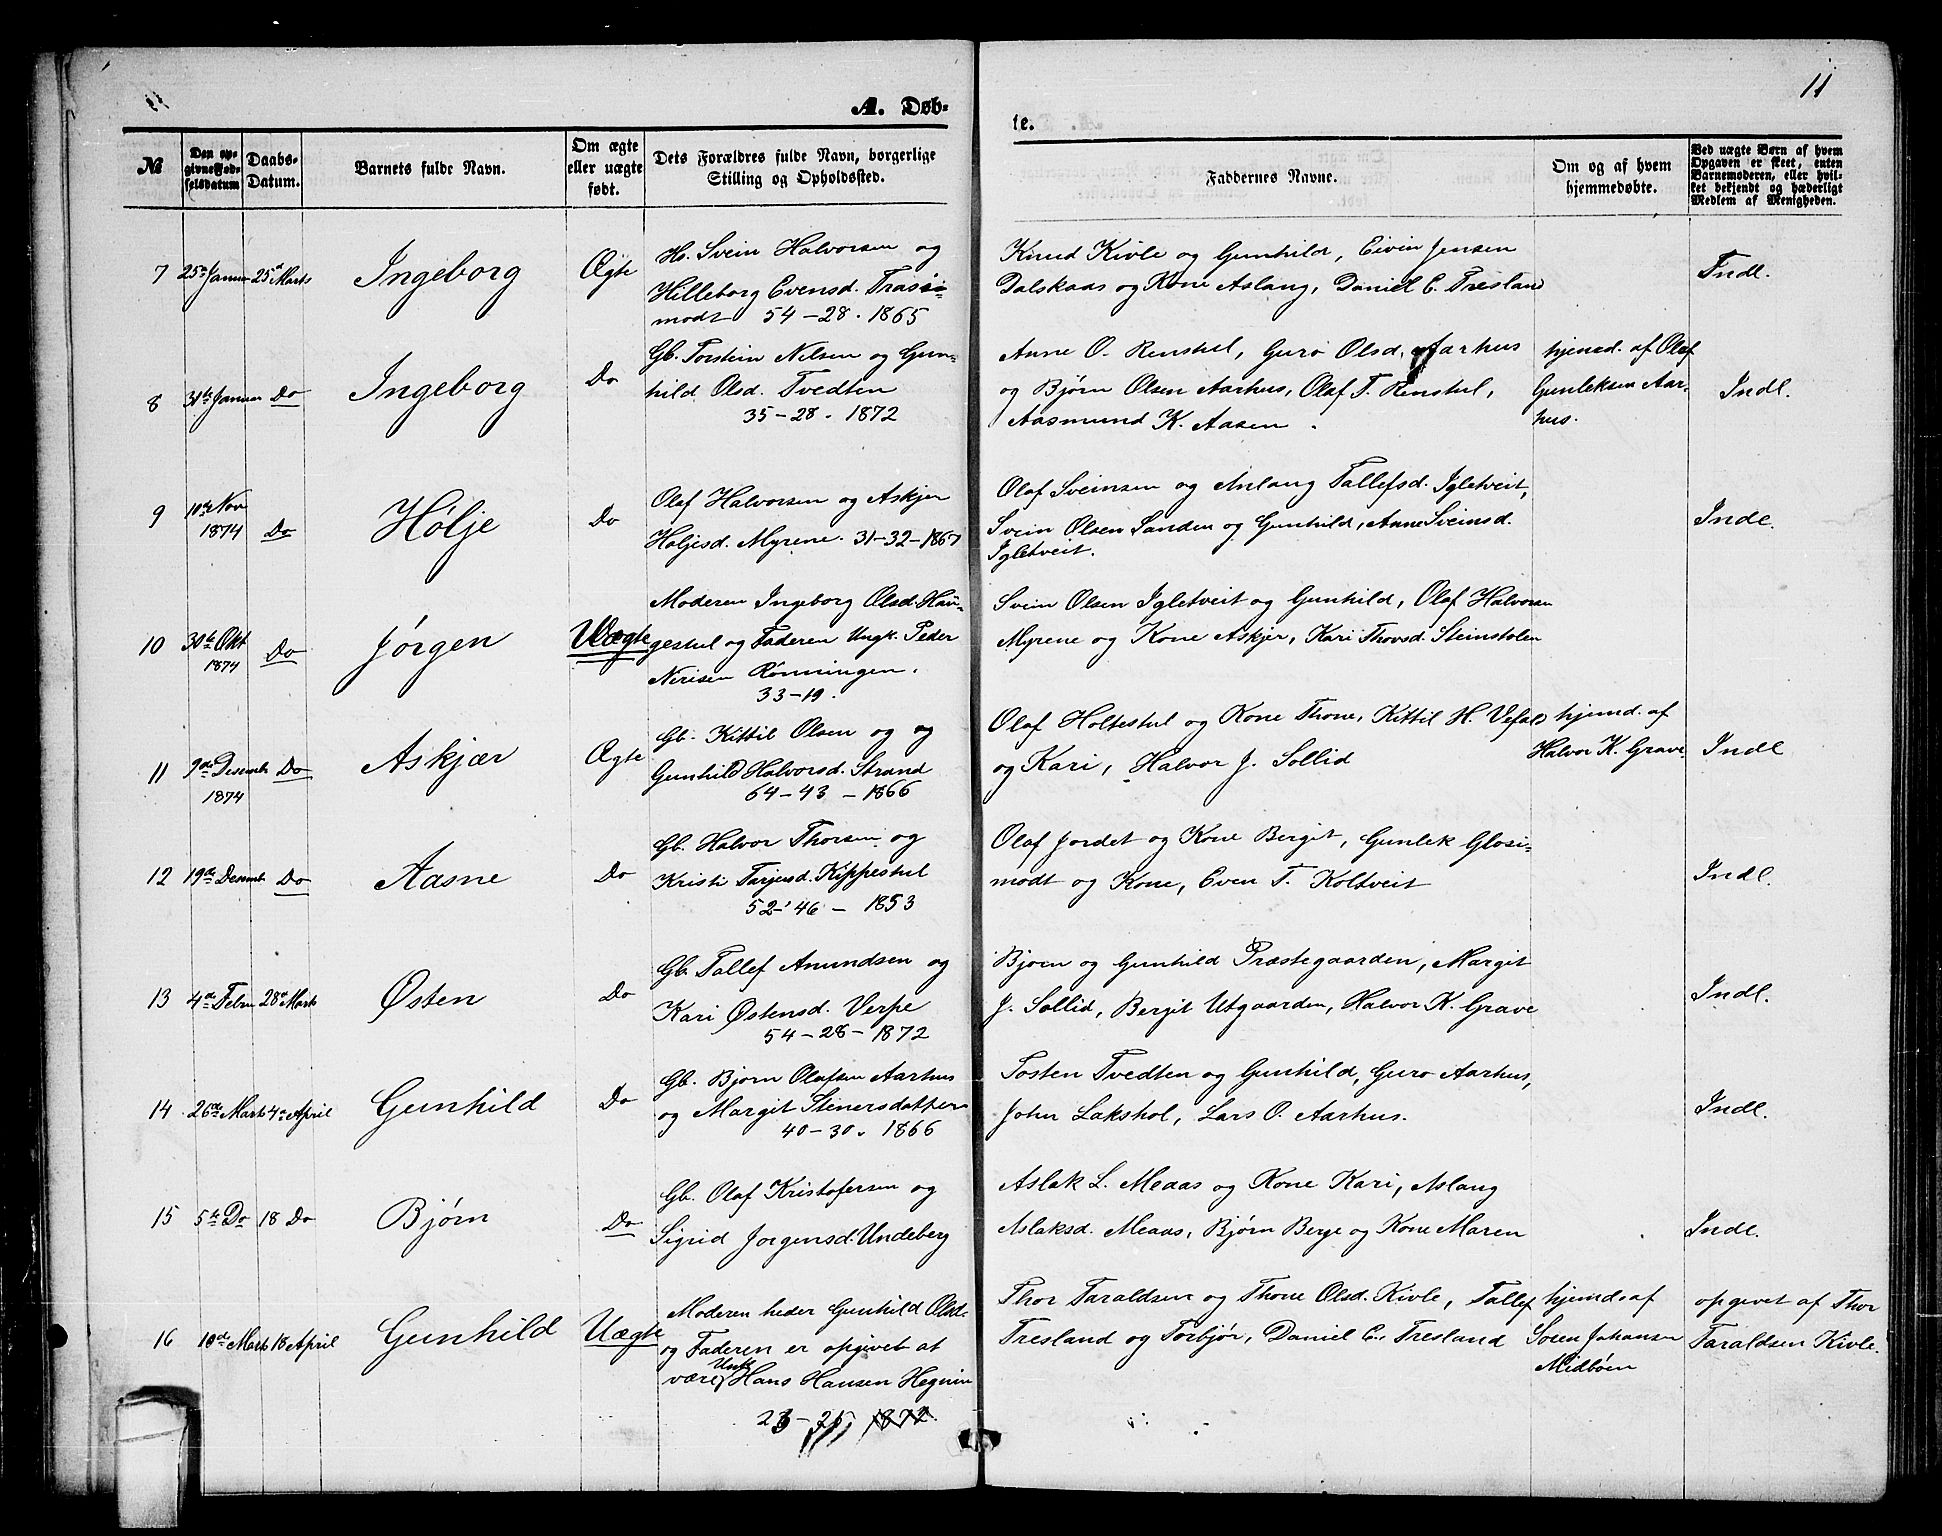 11
A. Døb-
te.
№
Den op-
givne Fød-
selsdatum
Daabs-
Datum.
Barnets fulde Navn.
Om ægte
eller uægte
født.
Dets Forældres fulde Navn, borgerlige
Stilling og Opholdssted.
Faddernes Navne.
Om og af hvem
hjemmedøbte.
Ved uægte Børn af hvem
Opgaven er skeet, enten
Barnemoderen, eller hvil-
ket bekjendt og hæderligt
Medlem af Menigheden.
7 25de Januar 25de Marts Ingeborg Ægte
Svein Halvorsen og
Hilleborg Evensd. Trasi-
modt 54-28. 1865
Knud Kivle og Gunhild, Eivin Jensen
Dalskaas og Kone Aslaug, Daniel E. Tresland
Indl.
8 31te Januar Do Ingeborg Do
Gb. Torstein Nilsen og Gun-
hild Olsd. Tvedten
35-28. 1872
Anne O. Renstul, Guro Olsd. Aarhus
og Bjørn Olsen Aarhus, Olaf T. Renstul,
Aasmund K. Aasen.
hjemd. af Olaf
Gunleksen Aar-
hus.
Indl.
9 10de Nov
1874 Do Hølje Do
Olaf Halvorsen og Askjer
Høljesd. Myrene. 31-32-1867
Olaf Sveinsen og Anlaug Tallefsd. Igletveit,
Svein Olsen Sanden og Gunhild, Anne Sveinsd.
Igletveit.
Indl.
10 30te Okt
1874 Do Jørgen Uægte
Moderen Ingeborg Olsd. Hau-
gestul og Faderen Ungk. Peder
Nerisen Rønningen.
33-19.
Svein Olsen Igletveit og Gunhild, Olaf Halvorsen
Myrene og Kone Askjer, Kari Thovsd. Steinstolen
11 9de Desembr
1874 Do Askjær Ægte
Gb. Kittil Olsen og og
Gunhild Halvorsd. Strand
64-43-1866
Olaf Holtestul og Kone Thone, Kittil H. Vefald
og Kari, Halvor J. Sollid
hjemd. af
Halvor K. Grave.
Indl
12 19de Desemb Do Aasne Do
Gb. Halvor Thorsen og
Kristi Tarjesd. Kippestul
52-46-1853
Olaf Jordet og Kone Bergit, Gunlek Glosi-
modt og Kone, Even T. Koltveit
Indl.
13 4de Febru 28de Marts Østen Do
Gb Tallef Amundsen og
Kari Østensd. Verpe
54-28-1872
Bjørn og Gunhild Præstegaarden, Margit
J. Sollid, Bergit Utgaarden, Halvor K. Grave
Indl.
14 26de Marts 4de April Gunhild Do
Gb. Bjørn Olafsen Aarhus
og Margit Steinersdatter
40-30. 1866
Tosten Tvedten og Gunhild, Guro Aarhus,
John Lakshol, Lars O. Aarhus.
Indl.
15 5te Do 18 Do Bjørn Do
Gb. Olaf Kristofersen og
Sigrid Jørgensd. Undeberg
Aslak L. Meaas og Kone Kari, Aslaug
Aslaksd. Meaas, Bjørn Berge og Kone Maren
Indl.
16 10de Marts 18 April Gunhild Uægte
Moderen heder Gunhild Olsd.
og Faderen er opgivet at
være Ungk Hans Hansen Hegnin
23-25 1872.
Thor Taraldsen og Thone Olsd. Kivle, Tallef
Tresland og Torbjør, Daniel E. Tresland
hjemd. af
Søren Johansen
Midbøen
opgivet af Thor
Taraldsen Kivle.